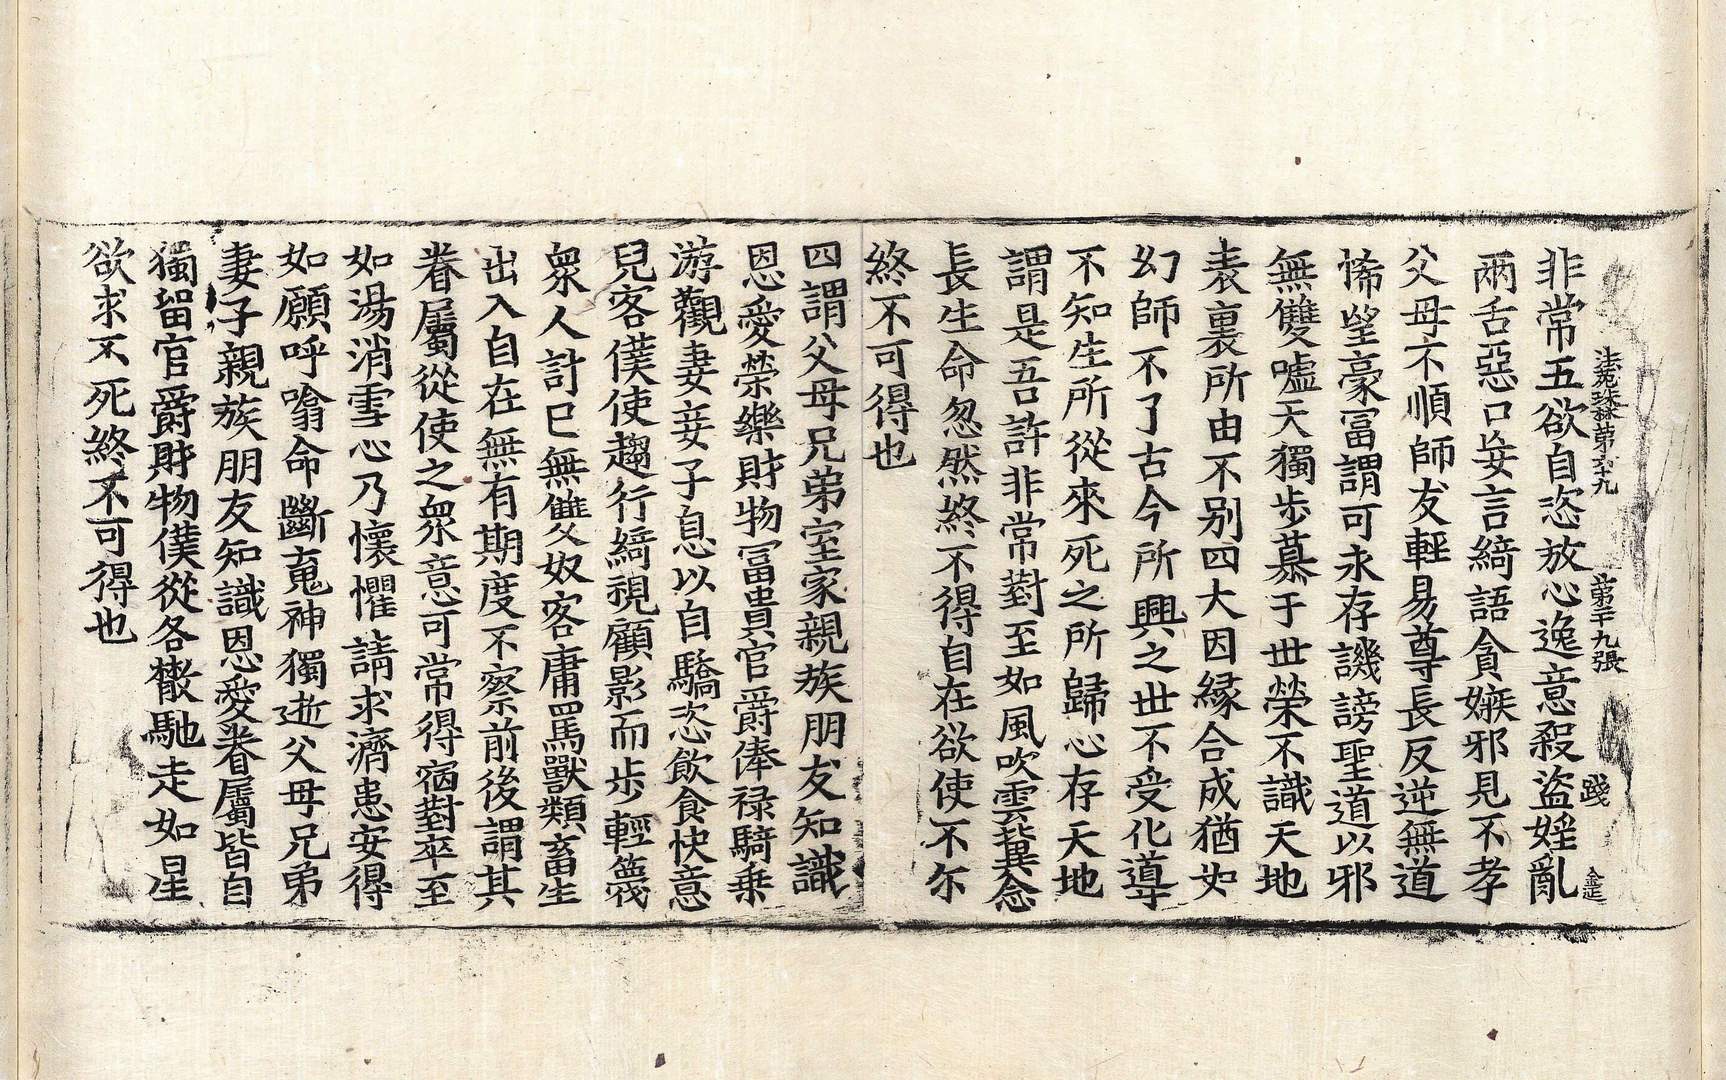 法苑珠林第九十九 第二十九張 踐
非常五欲自恣放心逸意殺盜婬亂
兩舌惡口妄言綺語貪嫉邪見不孝
父母不順師友輕易尊長反逆無道
悕望豪冨謂可永存譏謗聖道以邪
無雙嘘天獨步慕于世榮不識天地
表裏所由不別四大因縁合成猶如
幻師不了古今所興之世不受化導
不知生所從來死之所歸心存天地
謂是吾許非常對至如風吹雲兾念
長生命忽然終不得自在欲使不尒
終不可得也
四謂父母兄弟室家親族朋友知識
恩愛榮樂財物冨貴官爵俸禄騎乗
游觀妻妾子息以自驕恣飲食快意
兒客僕使趨行綺視顧影而步輕蔑
衆人計已無雙奴客庸罵獸類畜生
出入自在無有期度不察前後謂其
眷屬從使之衆意可常得宿對卒至
如湯消雪心乃懷懼請求濟患安得
如願呼噏命斷寬神獨逝父母兄弟
妻子親族朋友知識恩愛眷屬皆自
獨留官爵財物僕從各散馳走如星
欲求不死終不可得也